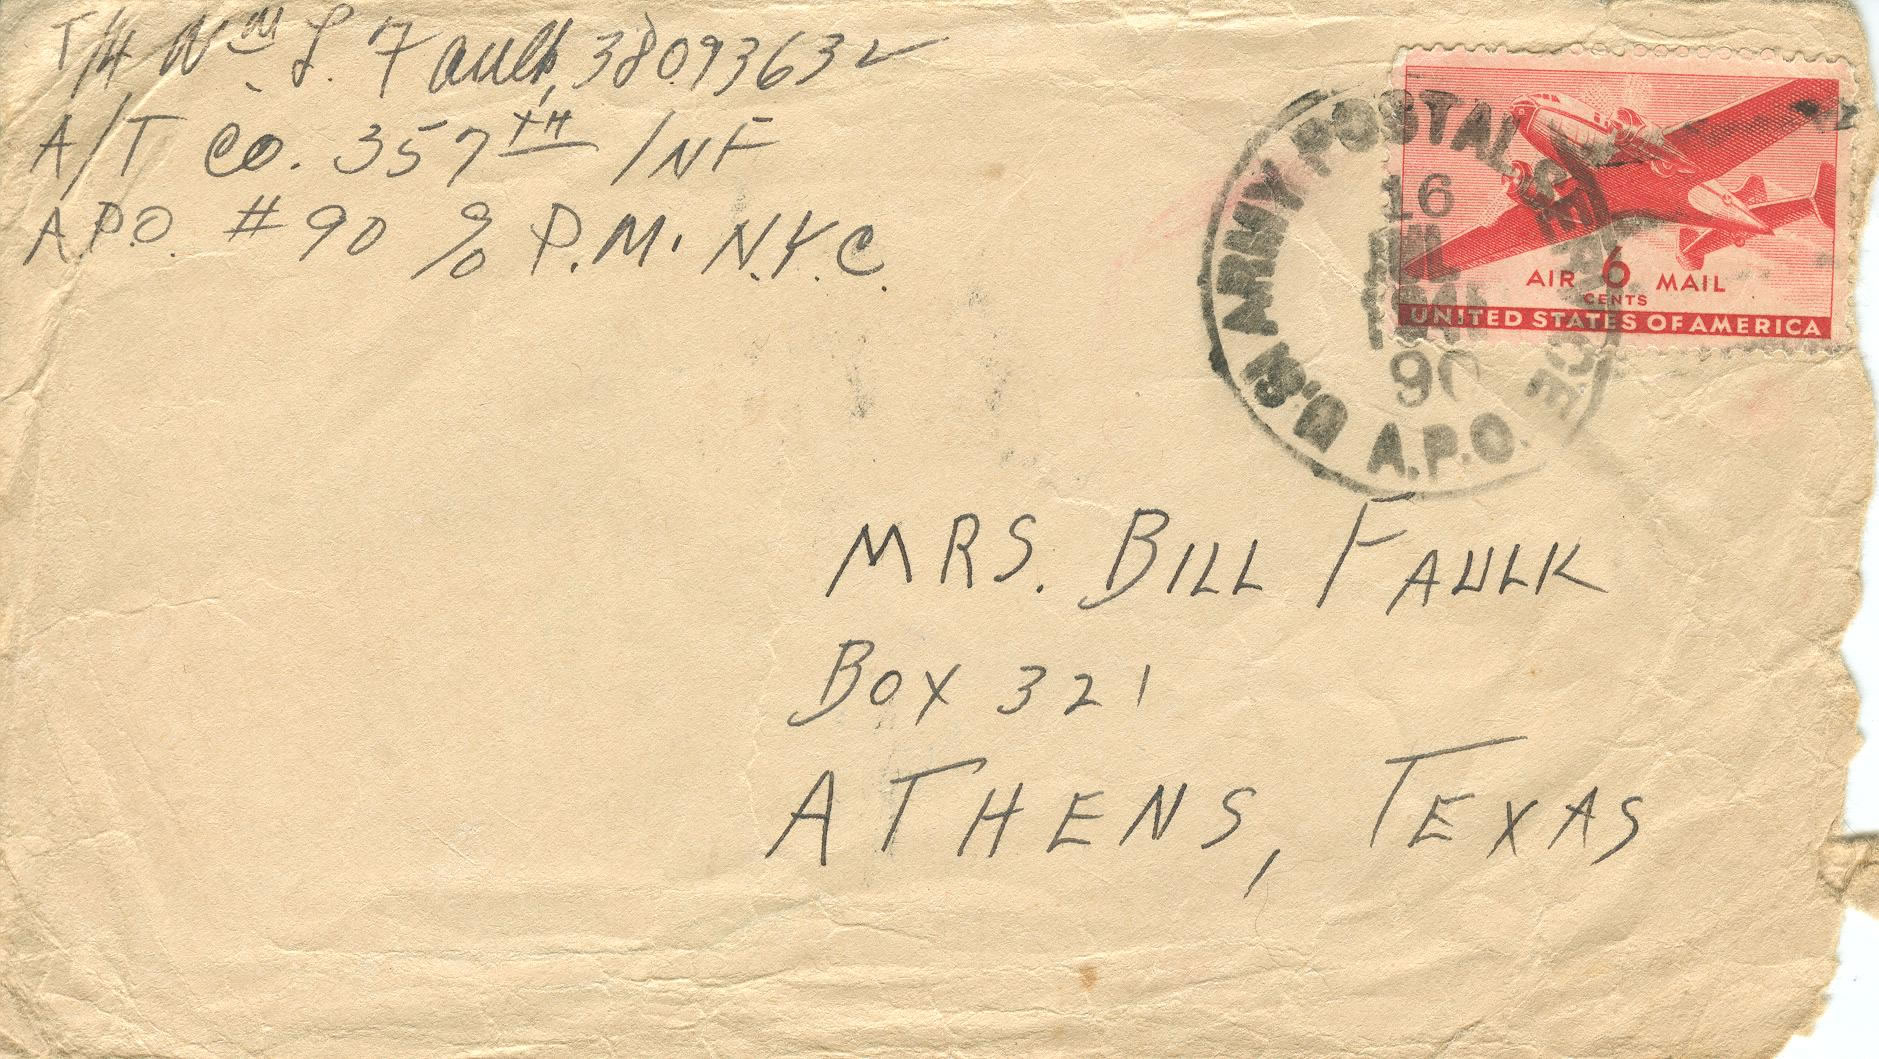 T/4 Wm L. Faulk, 38093632
A/T Co. 357TH INF
A.P.O. #90 c/o P.M. N.Y.C.
U.S. ARMY POSTAL SERVICE
16
JUL
90
A.P.O.
AIR 6 MAIL
CENTS
UNITED STATES OF AMERICA
MRS. BILL FAULK
BOX 321
ATHENS, TEXAS